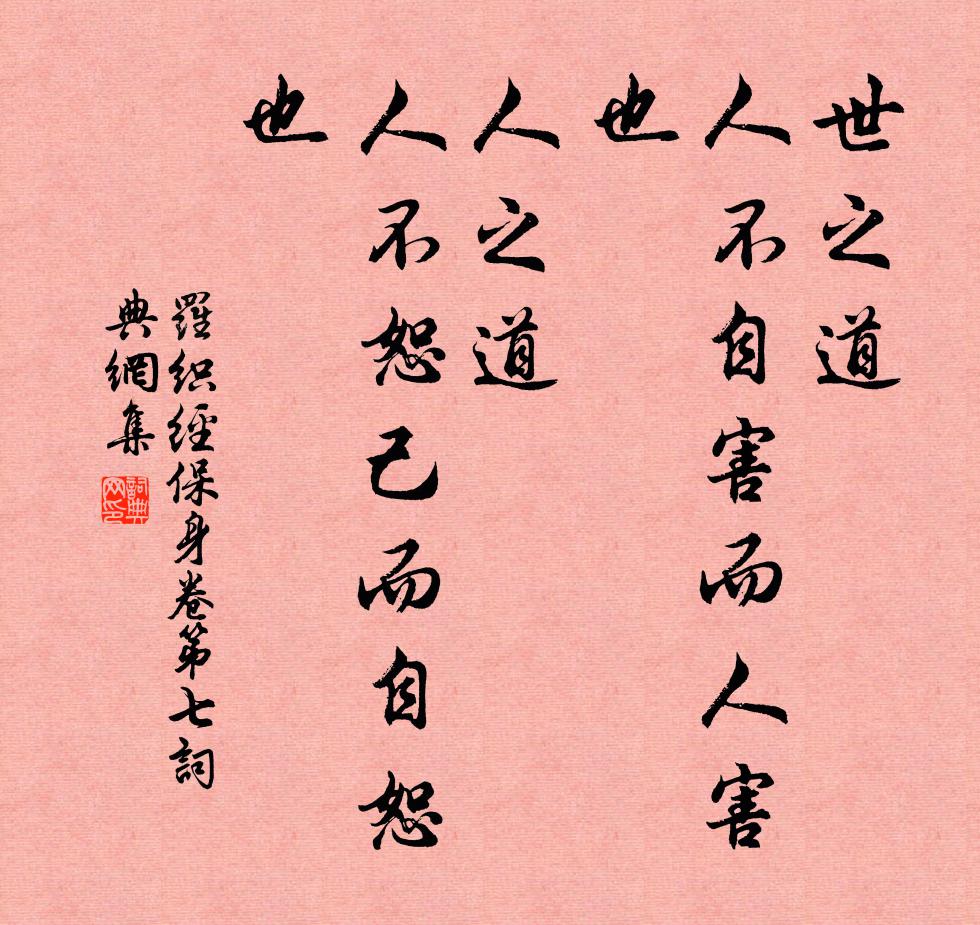 世之道
人不自害而人害
也
人之道
人不恕己而自恕
也
羅织經保身卷第七詞
典網集
詞典
网印